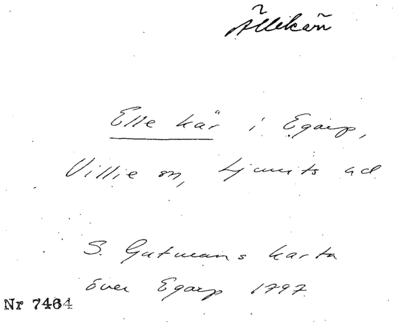 Elle kär i Egarp,
Villie sn, Ljunits hd
S. Gutmans karta
över Egarp 1797
Nr 7464